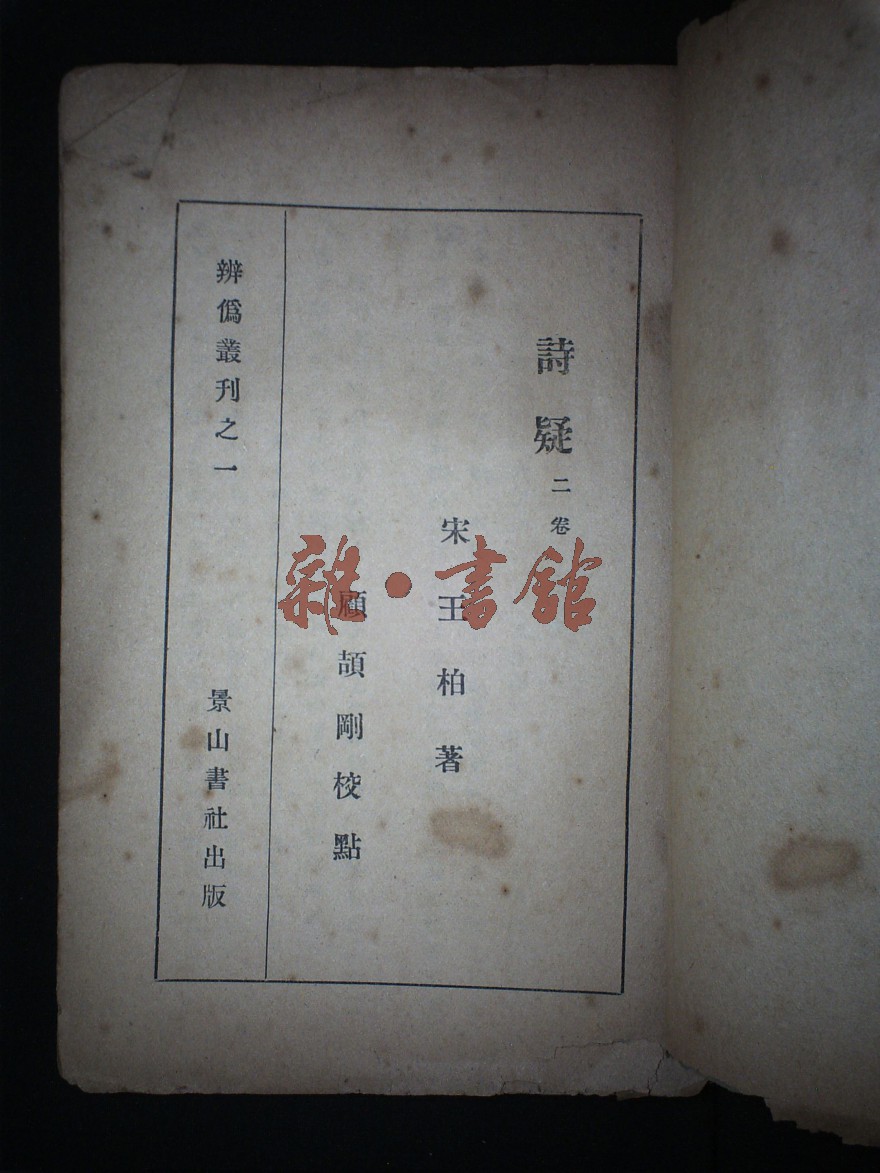 詩疑二卷
宋王柏著
顧頡剛校點
辨僞叢刊之一
景山書社出版
雜·書館